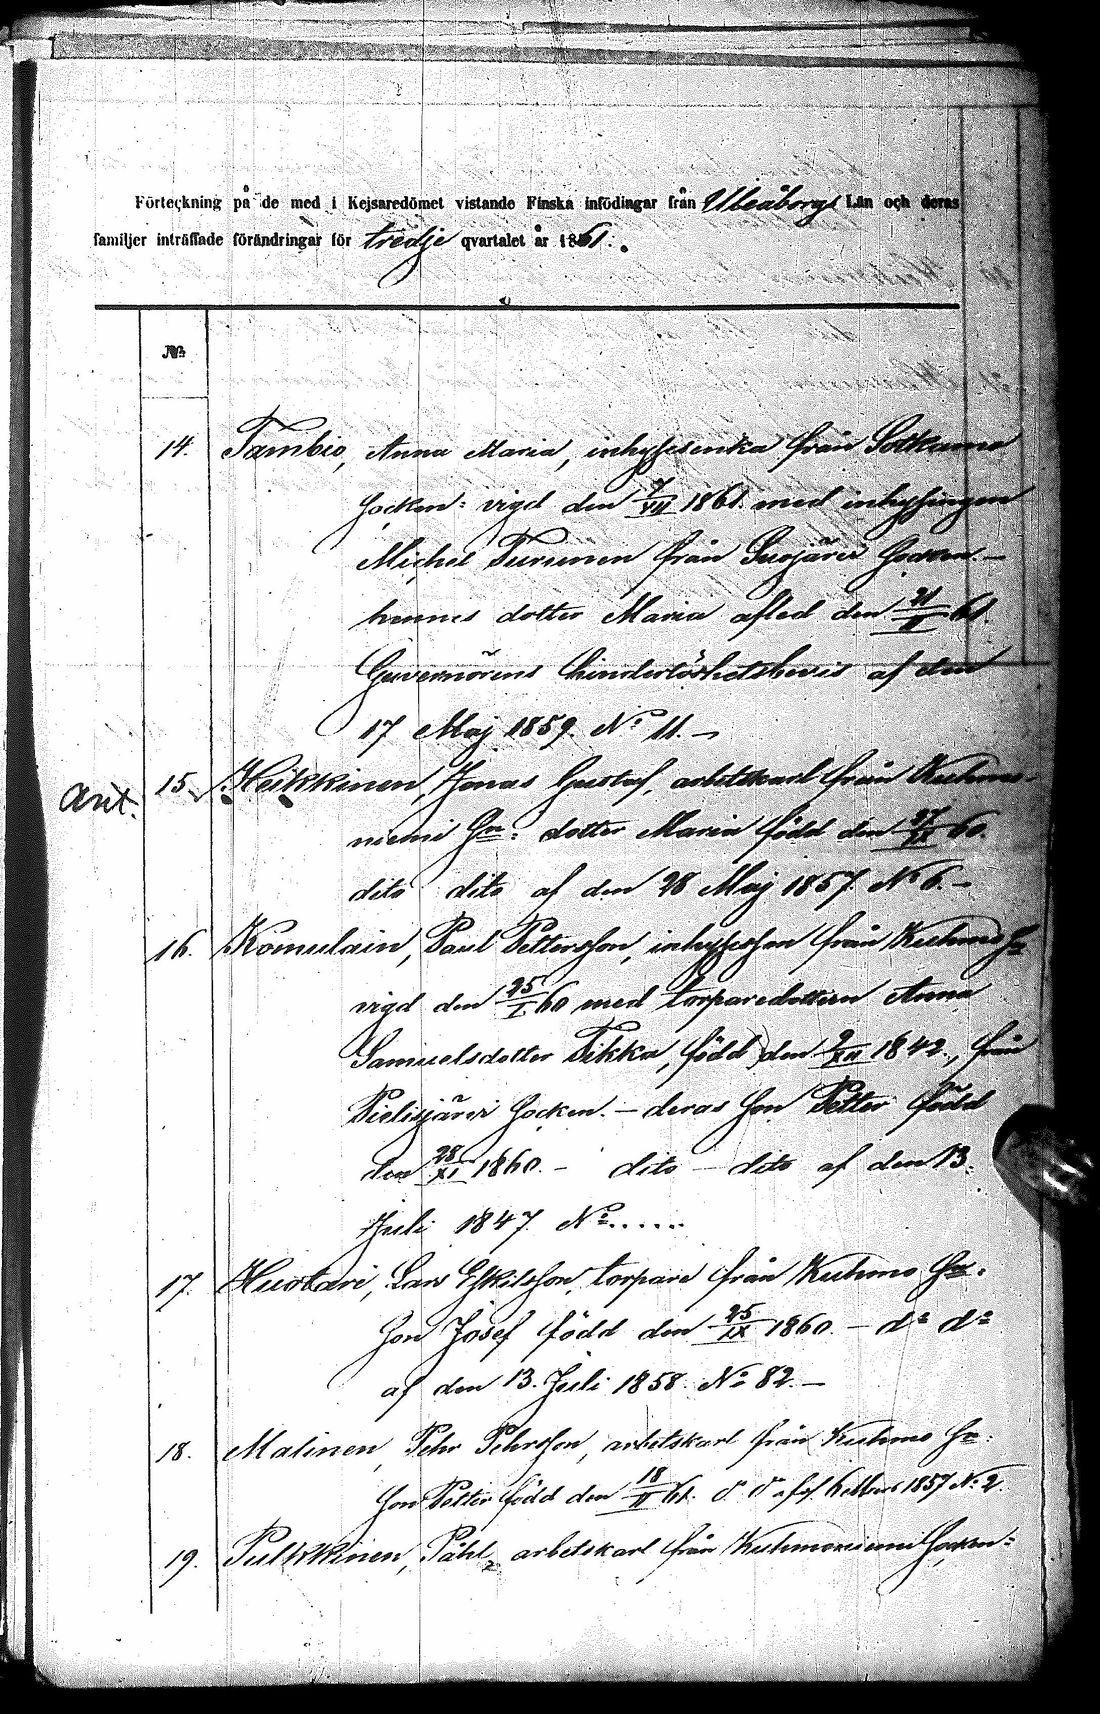 Förteckning på de med i Kejsaredömet vistande Finska infödingar från Uleåborgs Län och deras
familjer inträffade förändringar för tredje qvartalet år 1861.
No
14. Tambio, Anna Maria, inhysesenka från Sotkamo
Socken: vigd den 7/VII 1861. med inhysingen
Michel Turunen från Suojärvi Socken. —
hennes dotter Maria afled den 21/II 61.
Guvernörens hinderlöshetsbevis af den
17 Maj 1859. No 11. —
Ant. 15. Heikkinen, Jonas Gustaf, arbetskarl från Kuhmo-
niemi Sn: dotter Maria född den 27/IX 60.
dito dito af den 28 Maj 1857. No 6. —
16. Komulain, Paul Pettersson, inhysesson från Kuhmo Sn
vigd den 25/I 60 med torparedottern Anna
Samuelsdotter Tikka, född den 9/XII 1842., från
Pielisjärvi Socken. — deras Son Petter född
den 28/XI 1860. — dito — dito af den 13.
Juli 1847. No.....
17. Huotari, Lars Eskilsson, torpare från Kuhmo Sn.
Son Josef född den 25/IX 1860. — do do
af den 13. Juli 1858. No 82. —
18. Malinen, Pehr Pehrsson, arbetskarl från Kuhmo Sn:
Son Petter född den 18/II 61. 1857 No 2.
19. Pulkkinen, Påhl, arbetskarl från Kuhmoniemi Socken: